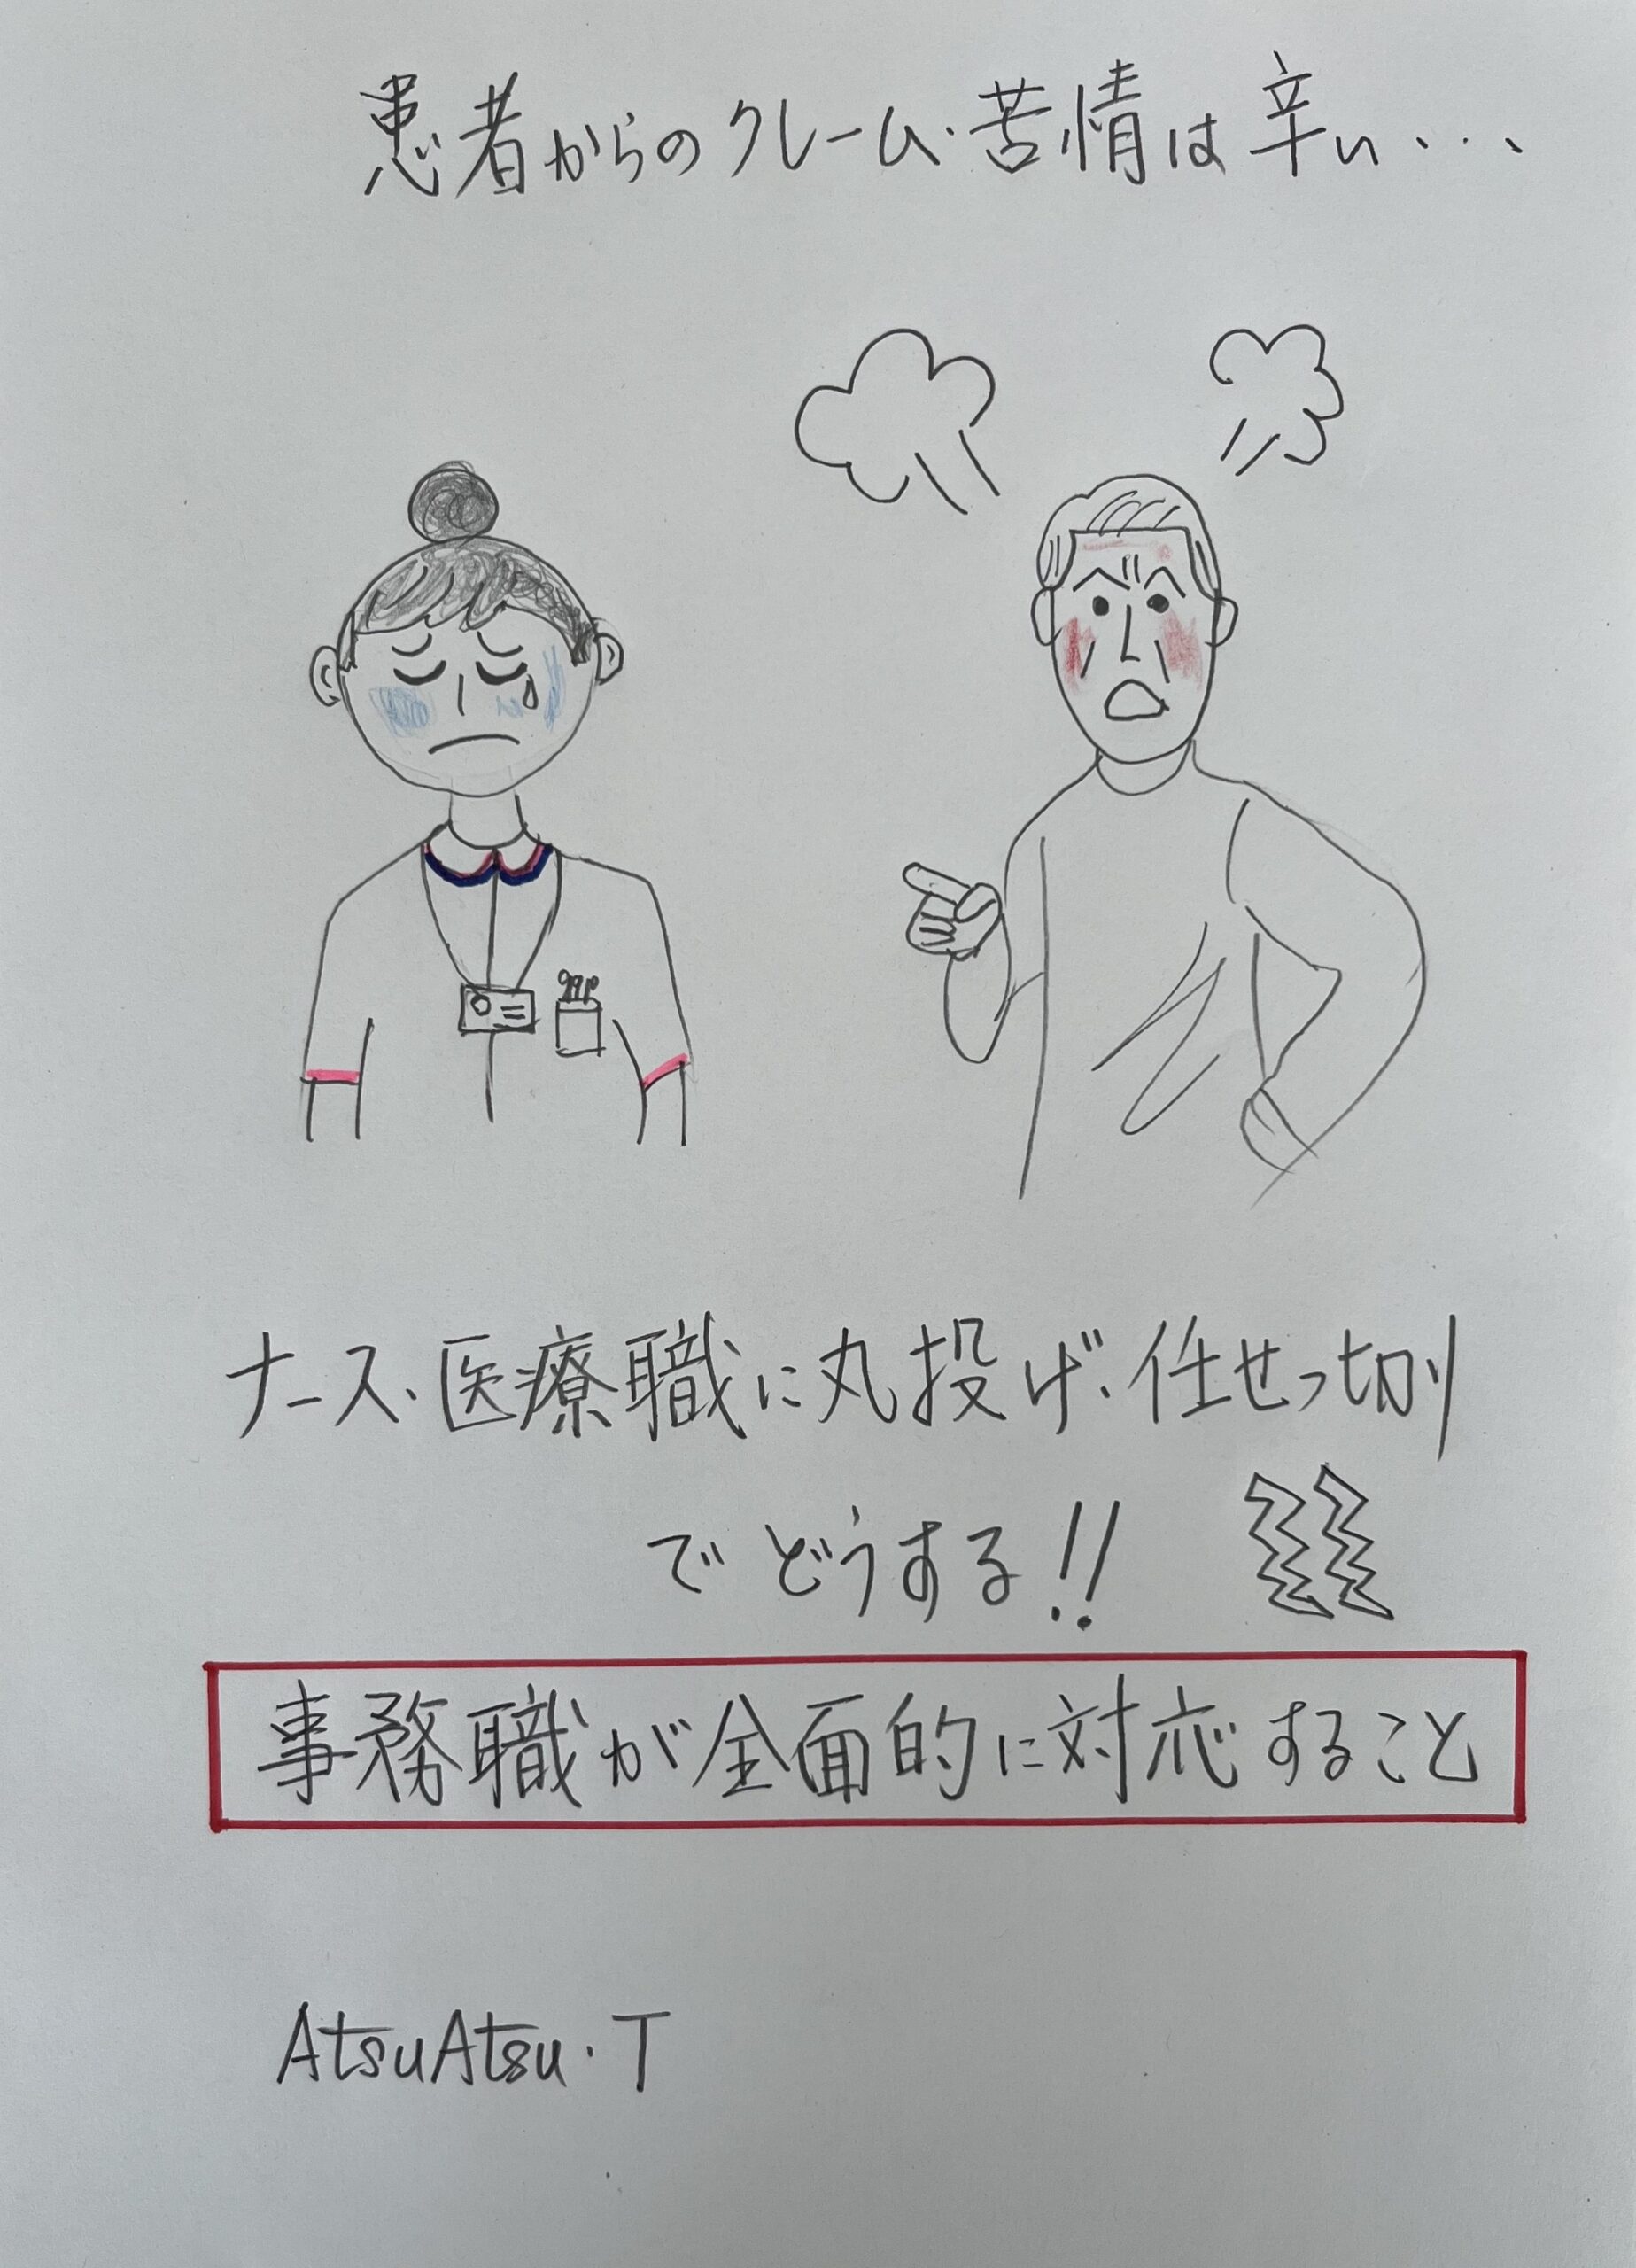 患者からのクレーム・苦情は辛い・・・
ナース・医療職に丸投げ・任せっ切り
でどうする!!
事務職が全面的に対応すること
AtsuAtsu・T